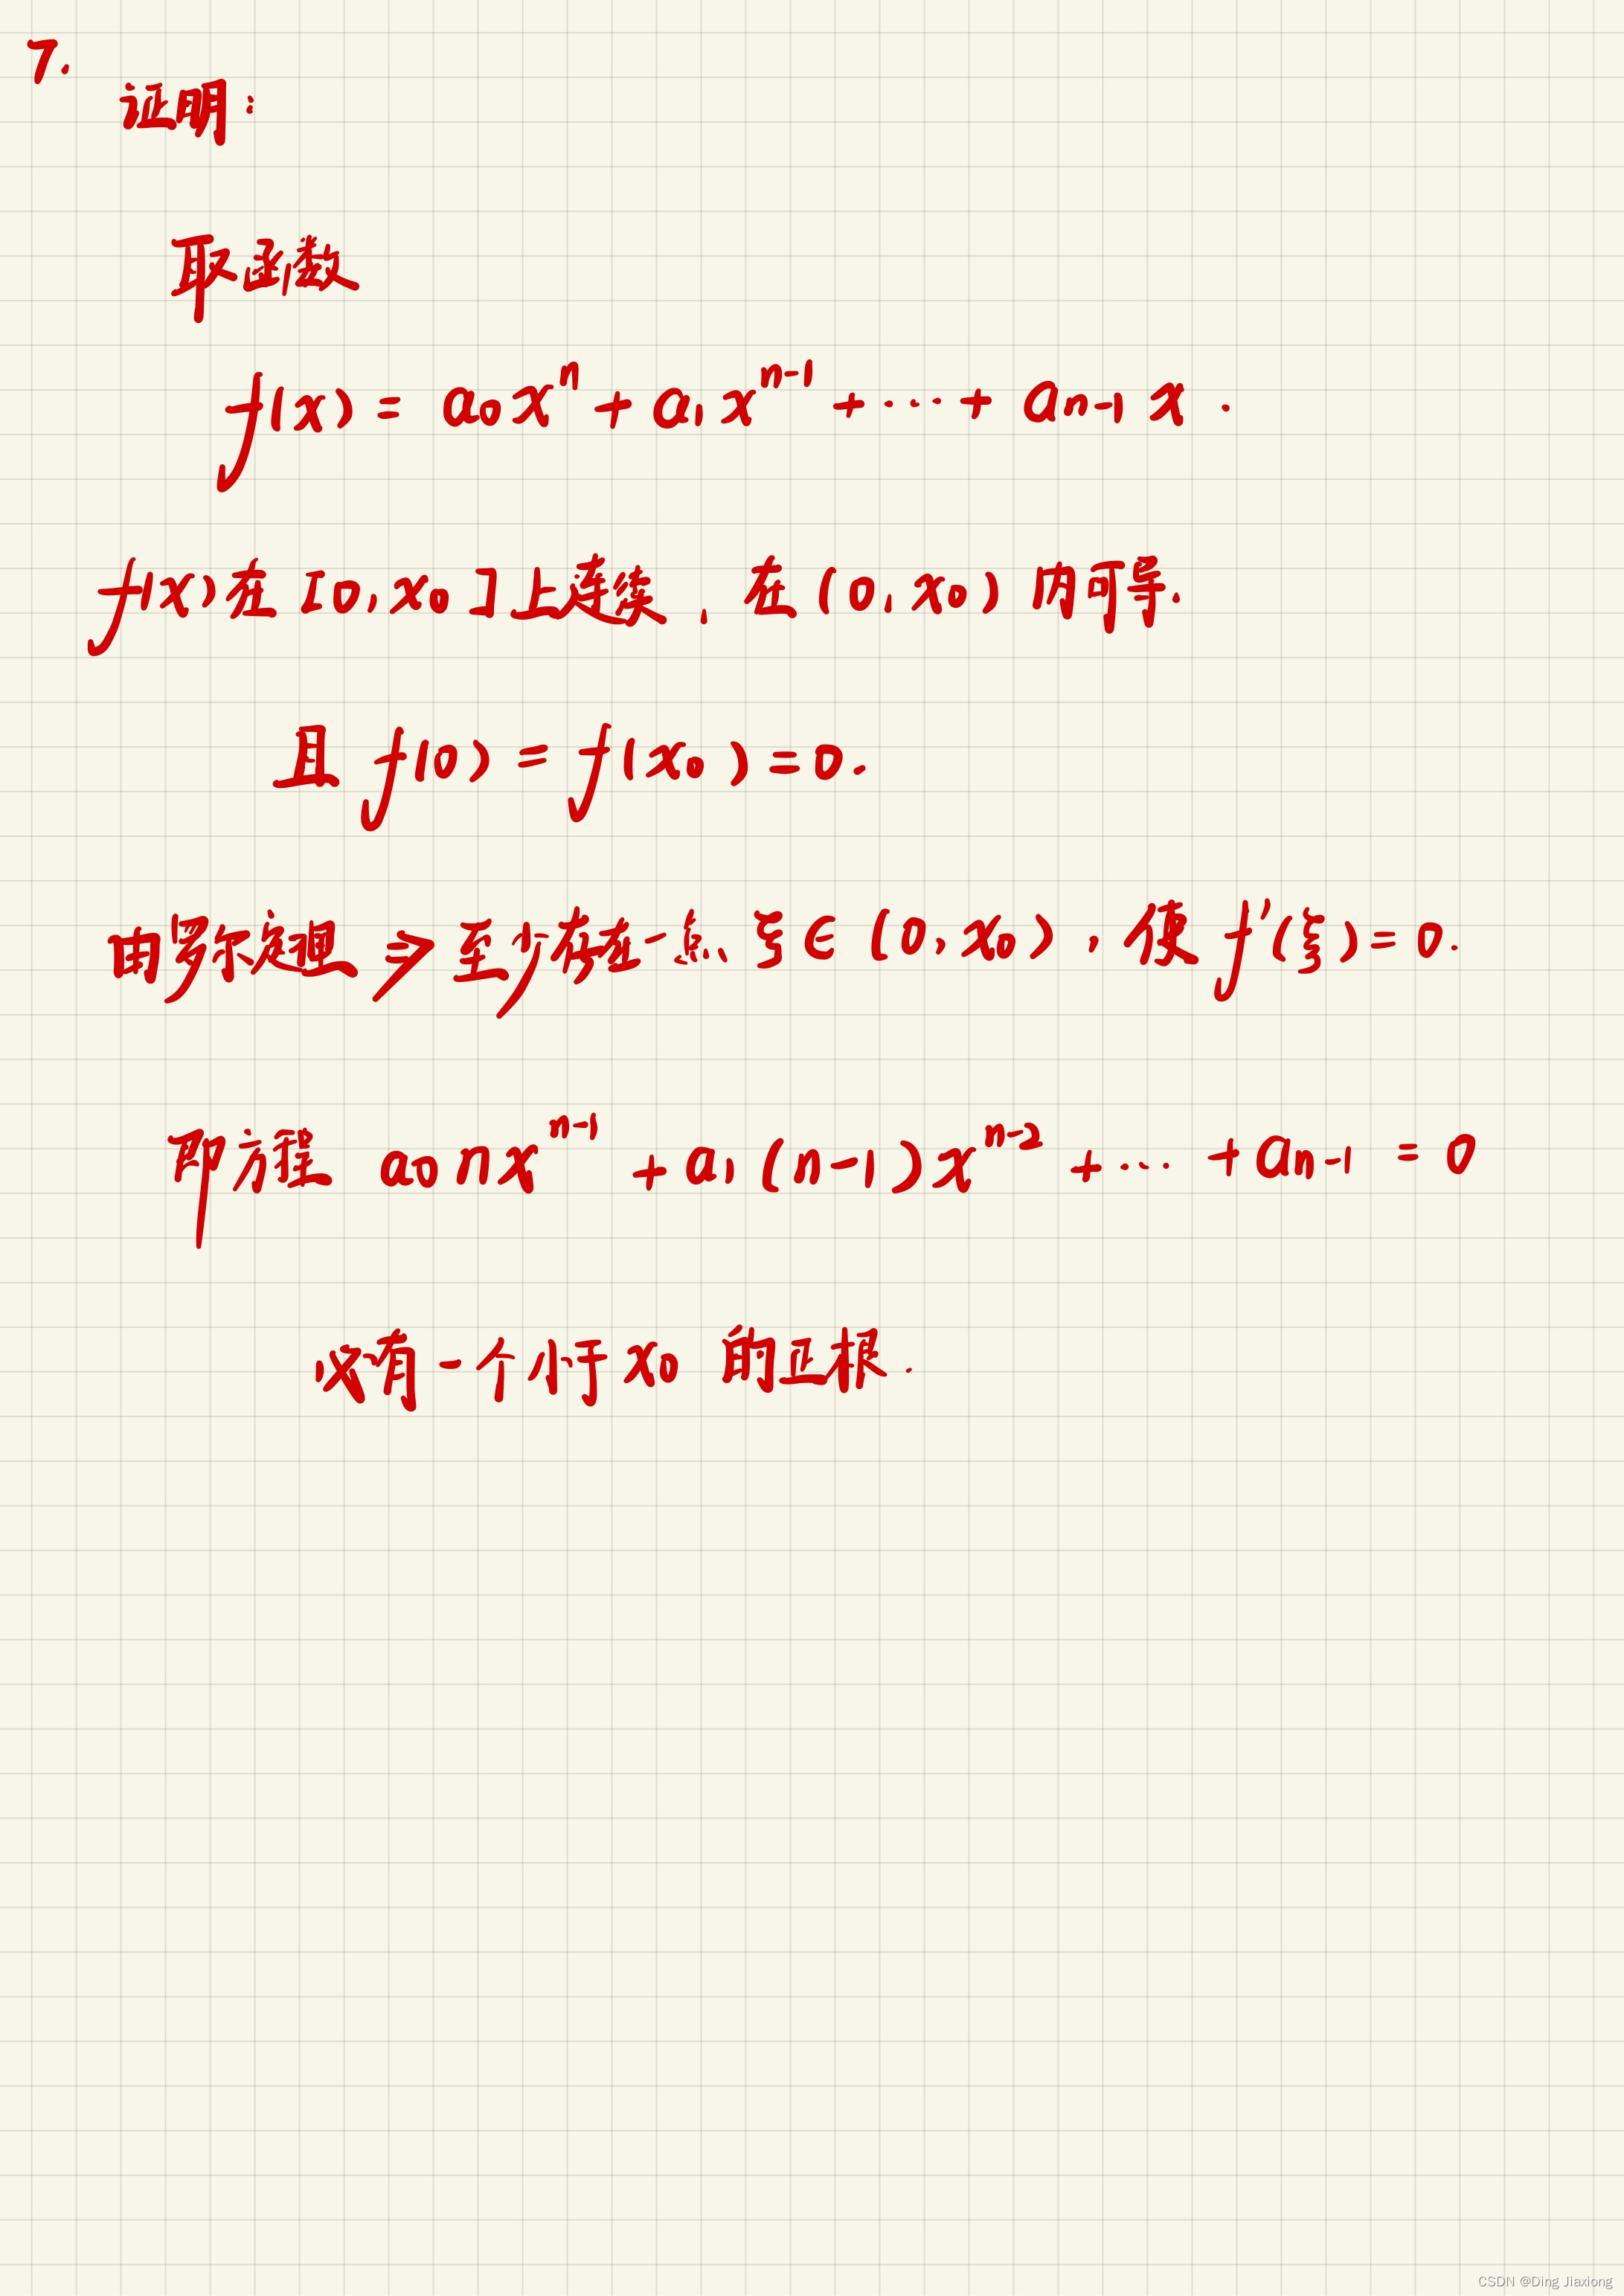 7.
证明:
取函数
f(x) = a₀xⁿ + a₁xⁿ⁻¹ + ··· + aₙ₋₁x .
f(x)在[0,x₀]上连续,在(0,x₀)内可导.
且 f(0) = f(x₀) = 0.
由罗尔定理 ⇒ 至少存在一点 ξ∈(0,x₀),使 f'(ξ) = 0.
即方程 a₀nxⁿ⁻¹ + a₁(n-1)xⁿ⁻² + ··· + aₙ₋₁ = 0
必有一个小于 x₀ 的正根.
CSDN @Ding Jiaxiong